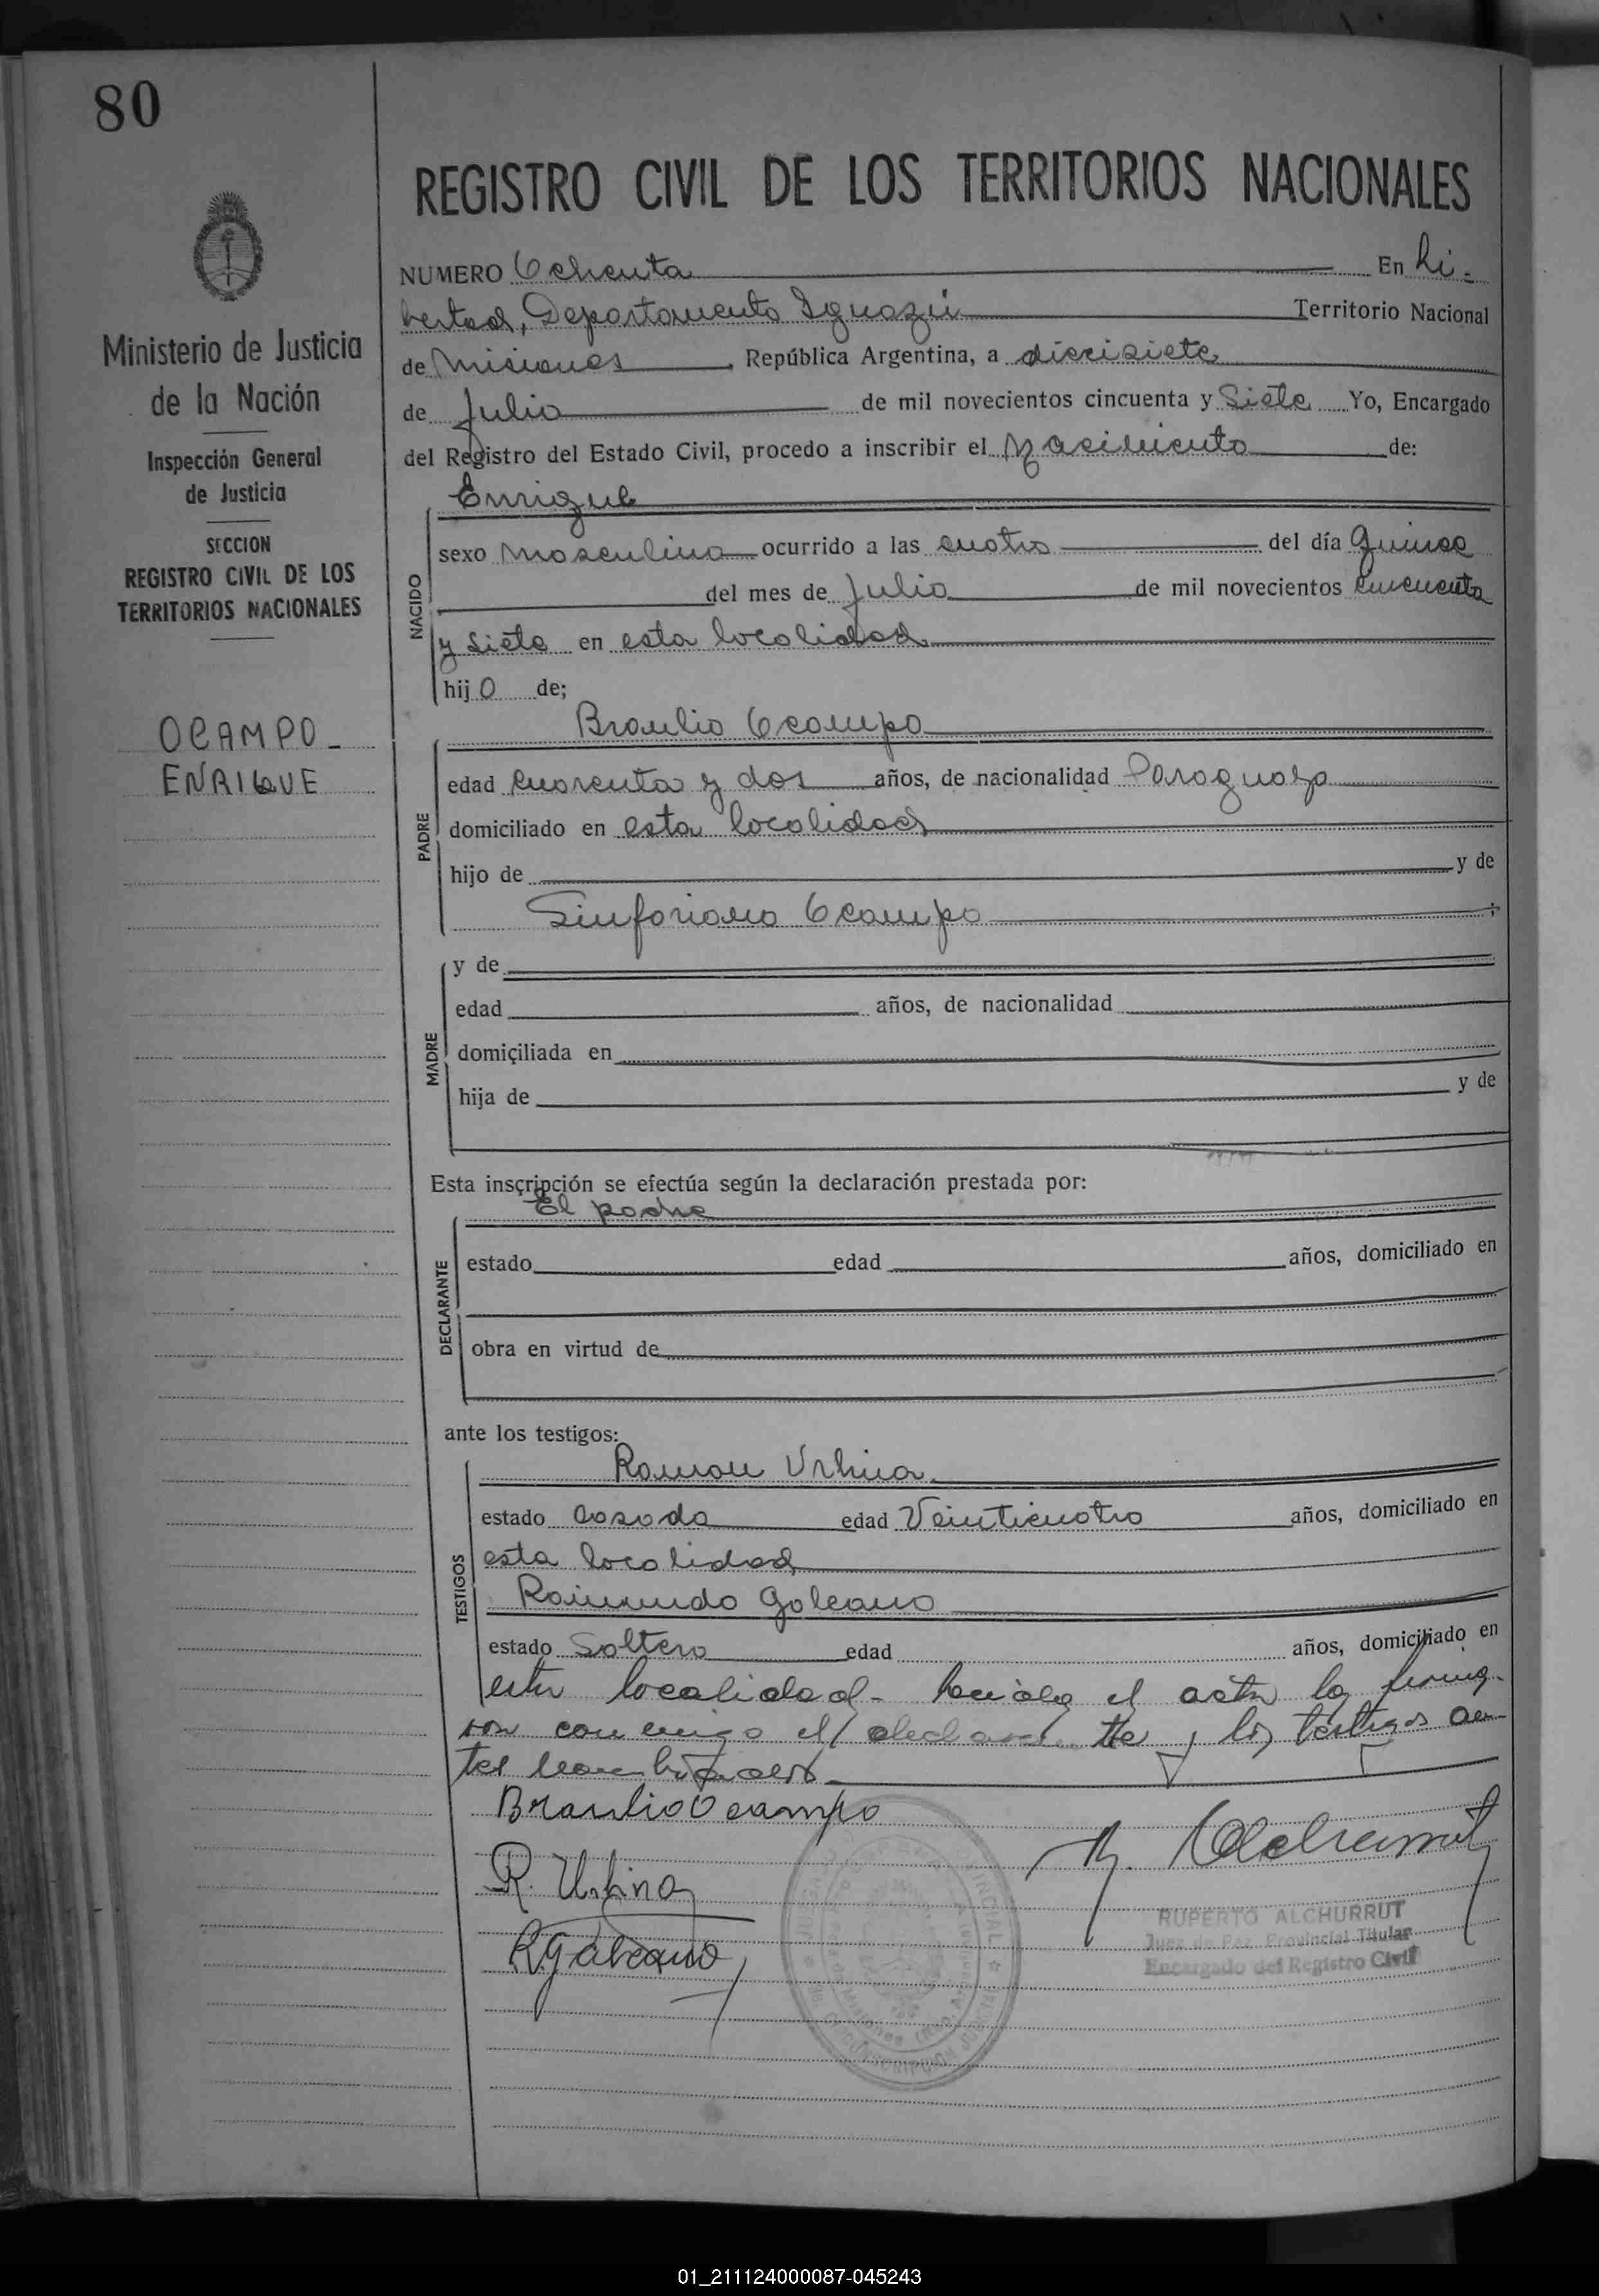 80
REGISTRO CIVIL DE LOS TERRITORIOS NACIONALES
Ministerio de Justicia
de la Nación
Inspección General
de Justicia
SECCION
REGISTRO CIVIL DE LOS
TERRITORIOS NACIONALES
OCAMPO -
ENRIQUE
NUMERO Ochenta En Li-
bertad, Departamento Iguazú Territorio Nacional
de Misiones, República Argentina, a diecisiete
de Julio de mil novecientos cincuenta y Siete Yo, Encargado
del Registro del Estado Civil, procedo a inscribir el Nacimiento de:
Enrique
NACIDO
sexo masculino ocurrido a las cuatro del día quince
del mes de Julio de mil novecientos cincuenta
y siete en esta localidad
hijo de;
Braulio Ocampo
PADRE
edad cuarenta y dos años, de nacionalidad Paraguaya
domiciliado en esta localidad
hijo de y de
Sinforiana Ocampo ;
MADRE
y de
edad años, de nacionalidad
domiciliada en
hija de y de
Esta inscripción se efectúa según la declaración prestada por:
El padre
DECLARANTE
estado edad años, domiciliado en
obra en virtud de
ante los testigos:
Ramon Urbina
TESTIGOS
estado Casado edad Veinticuatro años, domiciliado en
esta localidad
Raimundo Galeano
estado Soltero edad años, domiciliado en
esta localidad - Leída el acta la firma-
ron conmigo el declarante y los testigos an-
tes nombrados
Braulio Ocampo
R. Urbina
R Galeano
R. Alchurrut
RUPERTO ALCHURRUT
Juez de Paz Provincial Titular
Encargado del Registro Civil
01_211124000087-045243